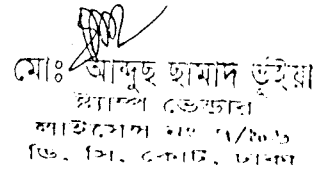 মোঃ আব্দুছ ছামাদ ভূঁইয়া
ষ্ট্যাম্প ভেন্ডার
লাইসেন্স নং ৭/২০০৬
ডি, সি, কোর্ট, ঢাকা